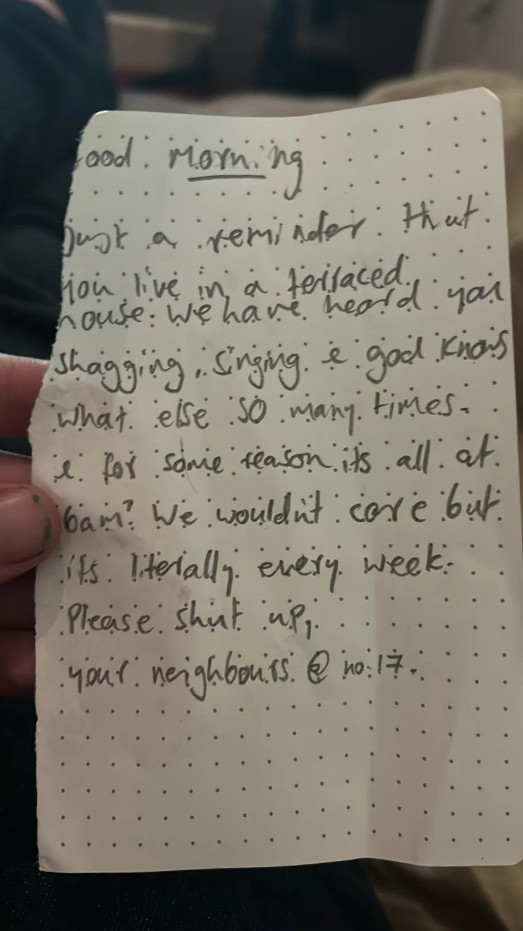 ood morning
Just a reminder that
you live in a terraced
house. We have heard you
shagging, singing & god knows
what else so many times.
& for some reason its all at
6am? We wouldn't care but
its literally every week.
Please shut up,
your neighbours @ no.17.